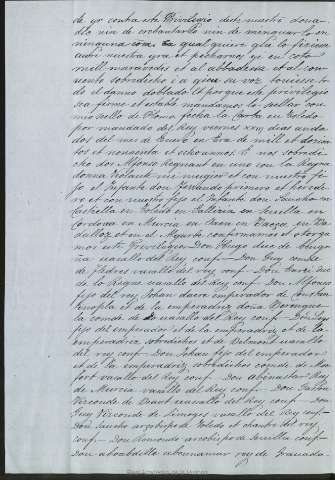 de yr contra este Privilegio deste nuestro dona-
dio nin de crebantarlo nin de menguarlo en
ninguna cosa Ca qual quiere que lo ficiese
aurie nuestra yra et pecharnos ye en coto
mill maravedis et al abbadesa et al con-
uento sobredicho o a qien su voz touiesse to-
do el danno doblado Et por que este privilegio
sea firme et estable mandamos lo sellar con
nuestro sello de Plomo fecha la carta en Toledo
por mandado del Rey viernes XXIII dias anda-
dos del mes de Enero en Era de mill et docien-
tos et nouenta et ocho annos. E nos sobredi-
cho don Alfonso Regnant en uno con la Reyna
donna Violant mi mugier et con nuestro fi-
jo el Infante don ferrando primero et herede-
ro et con nuestro fijo el Infante don Sancho en
Castiella en Toledo en Gallizia en Seuilla en
Cordova en Murcia en Jaen en Baeza en Ba-
dalloz et en el Algarve Confirmamos et otorga-
mos este Privilegio. Don Hugo duc de Bergo-
ña vasallo del Rey conf.— Don Guy conde
de fladres vasallo del rey conf. Don Henri duc
de lo Regne vasallo del Rey conf. Don Alfonso
fijo del rey Johan dacre emperador de Constan-
tinopla et de la emperadriz doña Berengue-
la conde de vasallo del Rey conf— Don Loys
fijo del emperador et de la emperadriz et de la
emperadriz sobredichos et de Belmont vasallo
del rey conf— Don Johan fijo del emperador
et de la emperadriz sobredichos comde de Mon-
fort vasallo del rey conf. Don Abuiafar Rey
de Murcia vasallo del Rey conf— Don Gaston
Vizconde de Beart vasallo del Rey conf— Don
Guy Vizconde de Limoges vasallo del Rey conf—
Don Sancho arzobispo de Toledo et chanceler del rey
conf— Don Remondo arzobispo de Seuilla conf—
Don aboabdille abennamar rey de Granada